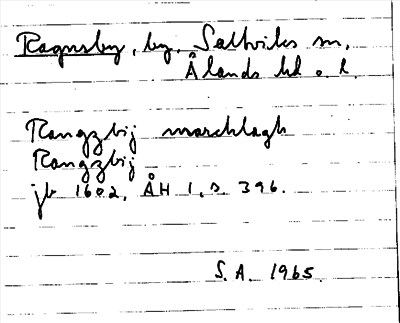 Ragnsby, by, Saltviks sn,
Ålands hd o. l.
Rangzbij marchlagh
Rangzbij
jb 1602, ÅH 1, s. 396.
S.A. 1965